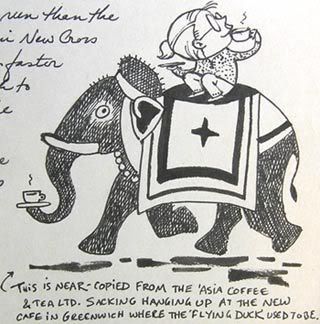 run than the
New Cross
faster
to
THIS IS NEAR-COPIED FROM THE 'ASIA COFFEE
& TEA LTD. SACKING HANGING UP AT THE NEW
CAFE IN GREENWICH WHERE THE 'FLYING DUCK' USED TO BE.